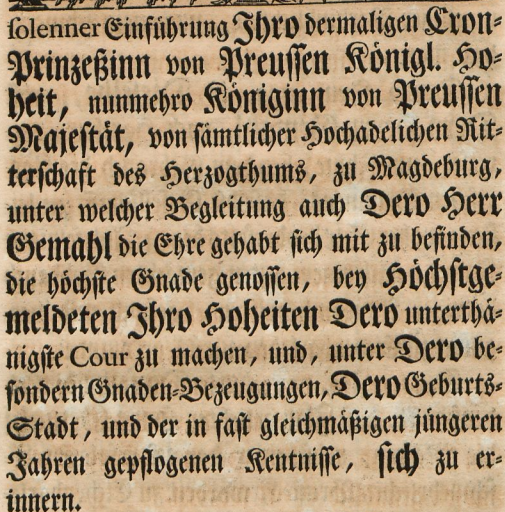 solenner Einführung Ihro dermaligen Cron-
Prinzeßinn von Preussen Königl. Ho-
heit, nunmehro Königinn von Preussen
Majestät, von sämtlicher Hochadelichen Rit-
terschaft des Herzogthums, zu Magdeburg,
unter welcher Begleitung auch Dero Herr
Gemahl die Ehre gehabt sich mit zu befinden,
die höchste Gnade genossen, bey Höchstge-
meldeten Ihro Hoheiten Dero unterthä-
nigste Cour zu machen, und, unter Dero be-
sondern Gnaden-Bezeugungen, Dero Geburts-
Stadt, und der in fast gleichmäßigen jüngeren
Jahren gepflogenen Kentnisse, sich zu er-
innern.